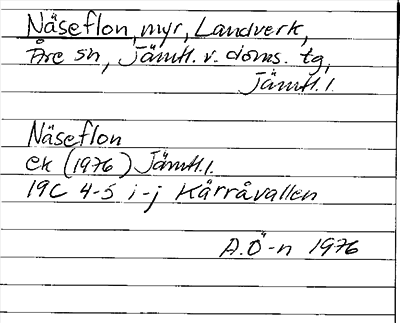 Näseflon, myr, Landverk,
Åre sn, Jämtl. v. doms. tg,
Jämtl. l.
Näseflon
ek (1976) Jämtl. l.
19C 4-5 i-j Kårråvallen
A.Ö-n 1976